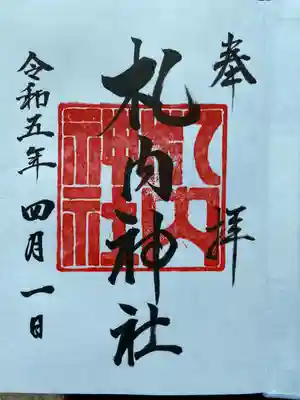 奉拝
札内神社
令和五年四月一日
札内神社